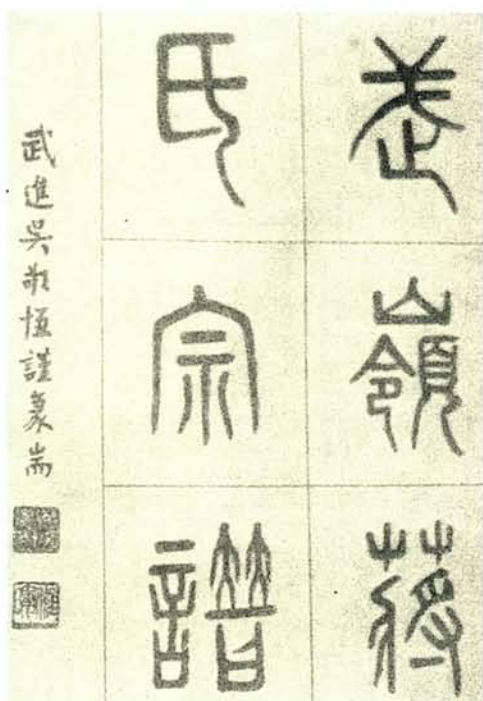 武嶺蔣
氏宗譜
武進吳敬恒謹篆耑